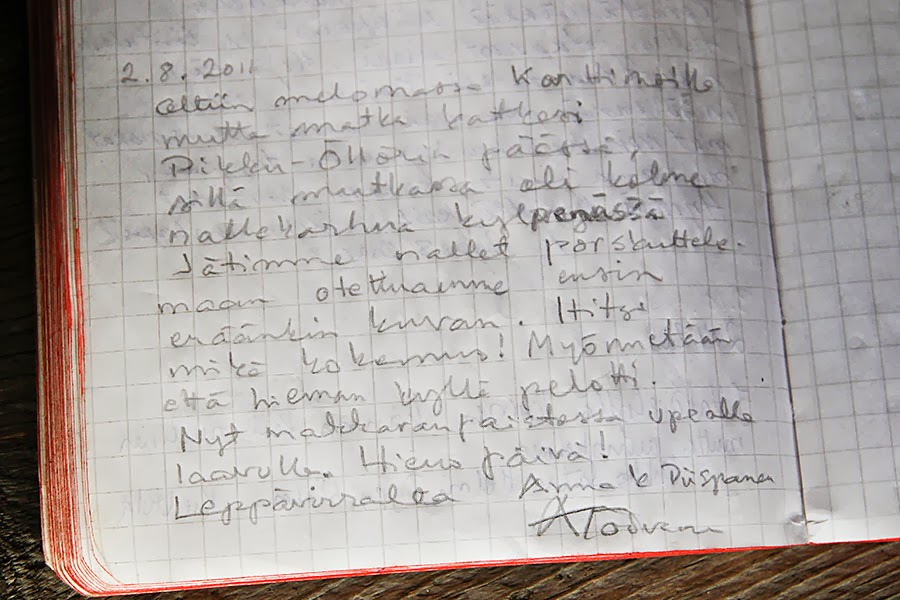 2.8.2011
Oltiin melomassa Kontiinojlle
mutta matka katkesi
Pikku-Öllörin päässä,
sillä mutkassa oli kolme
nallekarhua kylpemässä
Jätimme nallet porskuttele-
maan otettuamme ensin
eräänkin kuvan. Hitsi
mikä kokemus! Myönnetään,
että hieman kyllä pelotti.
Nyt makkaranpaistossa upealla
laavulla. Hieno päivä!
Leppävirralta Anna &